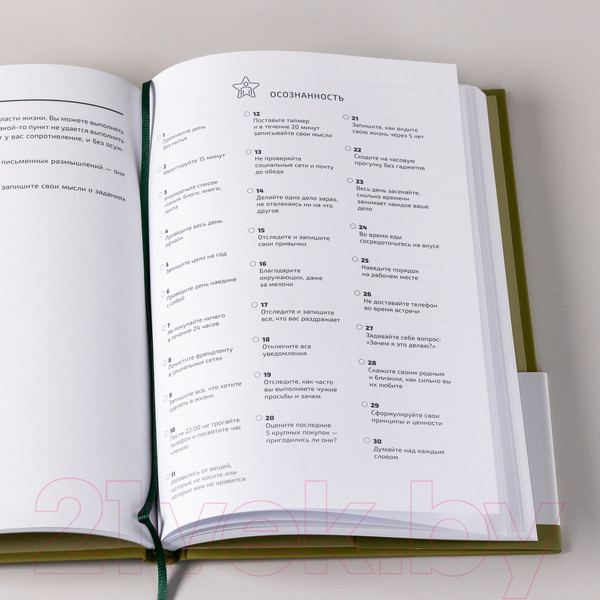 ласти жизни. Вы можете выполнять
какой-то пункт не удается выполнить
т у вас сопротивление, и без осуж-
письменных размышлений — они
запишите свои мысли о заданиях
ОСОЗНАННОСТЬ
1
Проживите день
без нытья
2
Медитируйте 15 минут
3
Упорядочьте список
чтения: блоги, книги,
лента
4
Проведите весь день
офлайн
5
Запишите цели на год
6
Проведите день наедине
с собой
7
Не покупайте ничего
в течение 24 часов
8
Почистите френдленту
в социальных сетях
9
Запишите все, что хотите
сделать в жизни
10
После 22:00 не трогайте
телефон и посвятите час
чтению
11
Избавьтесь от вещей,
которые не носите или
которые вам не нравятся
12
Поставьте таймер
и в течение 20 минут
записывайте свои мысли
13
Не проверяйте
социальные сети и почту
до обеда
14
Делайте одно дело зараз,
не отвлекаясь ни на что
другое
15
Отследите и запишите
свои привычки
16
Благодарите
окружающих, даже
за мелочи
17
Отследите и запишите
все, что вас раздражает
18
Отключите все
уведомления
19
Отследите, как часто
вы выполняете чужие
просьбы и зачем
20
Оцените последние
5 крупных покупок —
пригодились ли они?
21
Запишите, как видите
свою жизнь через 5 лет
22
Сходите на часовую
прогулку без гаджетов
23
Весь день засекайте,
сколько времени
занимает каждое ваше
дело
24
Во время еды
сосредоточьтесь на вкусе
25
Наведите порядок
на рабочем месте
26
Не доставайте телефон
во время встречи
27
Задавайте себе вопрос:
«Зачем я это делаю?»
28
Скажите своим родным
и близким, как сильно вы
их любите
29
Сформулируйте свои
принципы и ценности
30
Думайте над каждым
словом
21vek.by